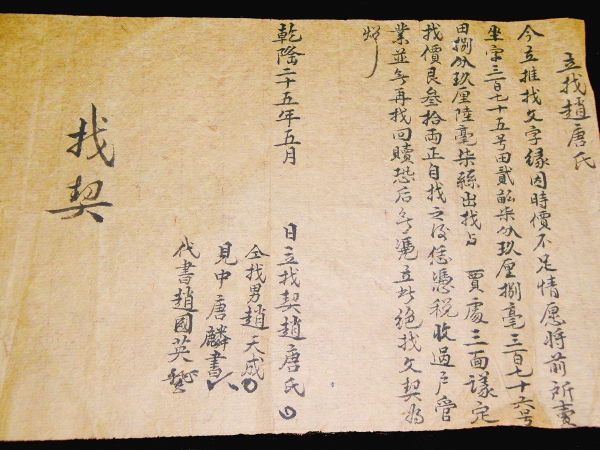 立找趙唐氏
今立推找文字緣因時價不足情愿將前祈賣
坐字三百七十五号田貳畝柒分玖厘捌毫三百七十六号
田捌分玖厘陸毫柒絲出找与 賈處三面議定
找價艮叁拾両正自找之後恁憑稅收過戶管
業並無再找回贖恐后無憑立此絕找文契為
炤
乾隆二十五年五月 日立找契趙唐氏
仝找男趙天成
見中唐麟書
代書趙國英
找契